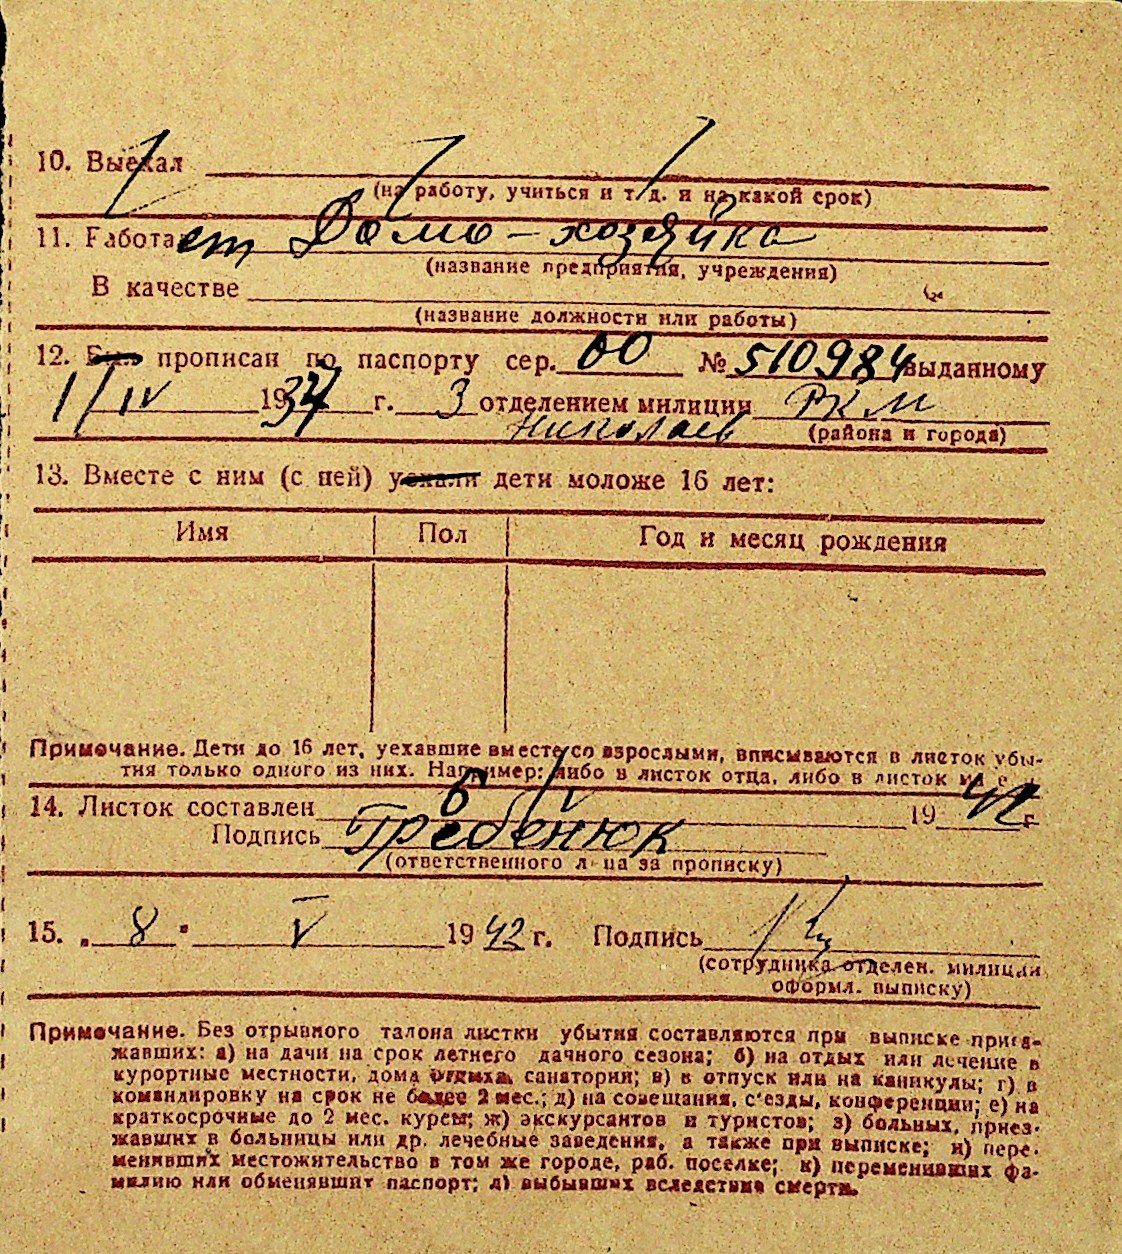 10. Выехал
(на работу, учиться и т. д. и на какой срок)
11. Работает Домо-хозяйка
(название предприятия, учреждения)
В качестве
(название должности или работы)
12. прописан по паспорту сер. 00 № 510984 выданному
1/IV 1937 г. 3 отделением милиции РКМ
Николаев (района и города)
13. Вместе с ним (с ней) уехали дети моложе 16 лет:
Имя Пол Год и месяц рождения
Примечание. Дети до 16 лет, уехавшие вместе со взрослыми, вписываются в листок убы-
тия только одного из них. Например: либо в листок отца, либо в листок
14. Листок составлен 6/V 1942 г.
Подпись Гребенюк
(ответственного лица за прописку)
15. „8" V 1942 г. Подпись
(сотрудника отделен. милиции
оформл. выписку)
Примечание. Без отрывного талона листки убытия составляются при выписке приез-
жавших: а) на дачи на срок летнего дачного сезона; б) на отдых или лечение в
курортные местности, дома отдыха, санатории; в) в отпуск или на каникулы; г) в
командировку на срок не более 2 мес.; д) на совещания, с'езды, конференции; е) на
краткосрочные до 2 мес. курсы; ж) экскурсантов и туристов; з) больных, приез-
жавших в больницы или др. лечебные заведения, а также при выписке; и) пере-
менивших местожительство в том же городе, раб. поселке; к) переменивших фа-
милию или обменявшит паспорт; л) выбывших вследствие смерти.